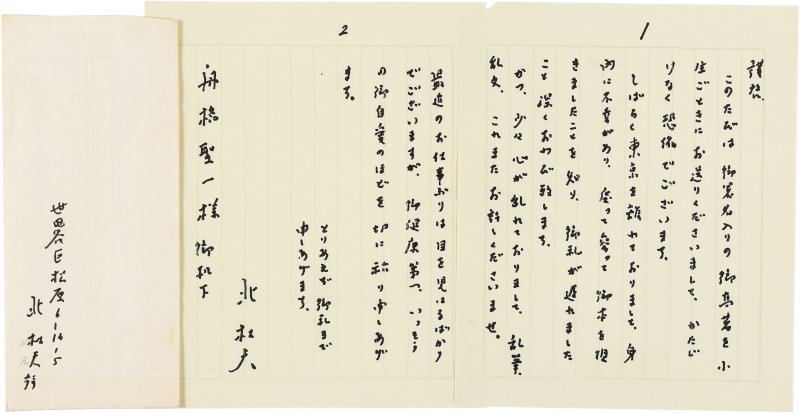 1
謹啓、
このたびは 御署名入りの御高著を 小
生ごときにお送りくださいまして、かたじ
けなく恐縮でございます。
しばらく東京を離れておりまして、身
内に不幸があり、御本を頂
きましたことを知り、御礼が遅れました
こと 深くおわび致します。
かつ、少々心が乱れておりまして、乱筆、
乱文、これまたお許しくださいませ。
2
最近のお仕事ぶりは目を見はるばかり
でございますが、御健康第一、いっそう
の御自愛のほどを切に祈り申しあげ
ます。
とりあえず御礼まで
申しあげます。
北 杜夫
舟橋聖一様 御机下
世田谷区松原6-16-5
北 杜夫